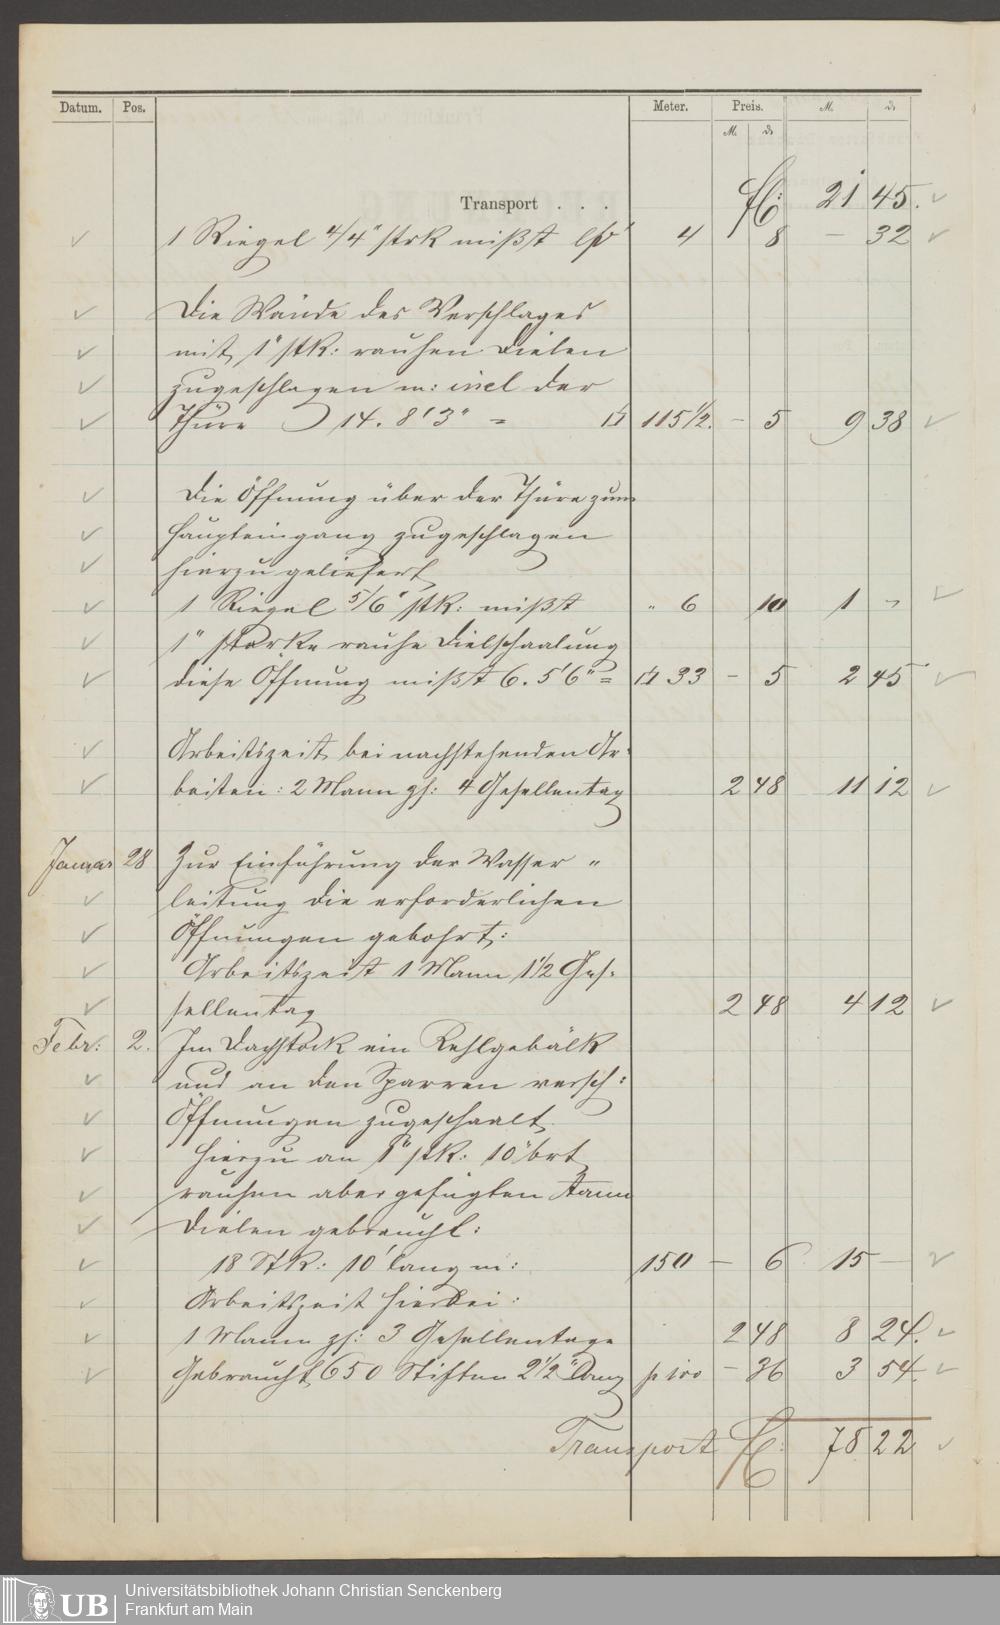 Datum. Pos. Meter. Preis. M. ₰
M. ₰
Transport . . . fl: 21 45.
1 Riegel 4/4" stk mißt 4 8 – 32
Die Wände des Verschlages
mit 1" stk: rauhen Dielen
zugeschlagen m: incl der
Thüre 14. 8'3" = □' 115 1/2. – 5 9 38
Die Öffnung über der Thüre zum
Haupteingang zugeschlagen
hierzu geliefert
1 Riegel 5/6" stk: mißt " 6 10 1 –
1" starke rauhe Dielschaalung
diese Öffnung mißt 6. 5'6" = □' 33 – 5 2 45
Arbeitszeit bei nachstehenden Ar-
beiten: 2 Mann zs: 4 Gesellentag 2 48 11 12
Januar 28 Zur Einführung der Wasser "
leitung die erforderlichen
Öffnungen gebohrt:
Arbeitszeit 1 Mann 1 1/2 Ges-
sellentag 2 48 4 12
Febr: 2. Im Dachstock ein Kehlgebälk
und an den Sparren versch:
Öffnungen zugeschaalt.
Hierzu an 1" stk: 10" brt
rauhen aber gefügten Tann
Dielen gebraucht:
18 Stk: 10' lang m: 150 – 6 15 –
Arbeitszeit hierbei:
1 Mann zs: 3 Gesellentage 2 48 8 24.
Gebraucht 650 Stiften 2 1/2" lang p 100 – 36 3 54.
Transport fl: 78 22
UB
Universitätsbibliothek Johann Christian Senckenberg
Frankfurt am Main